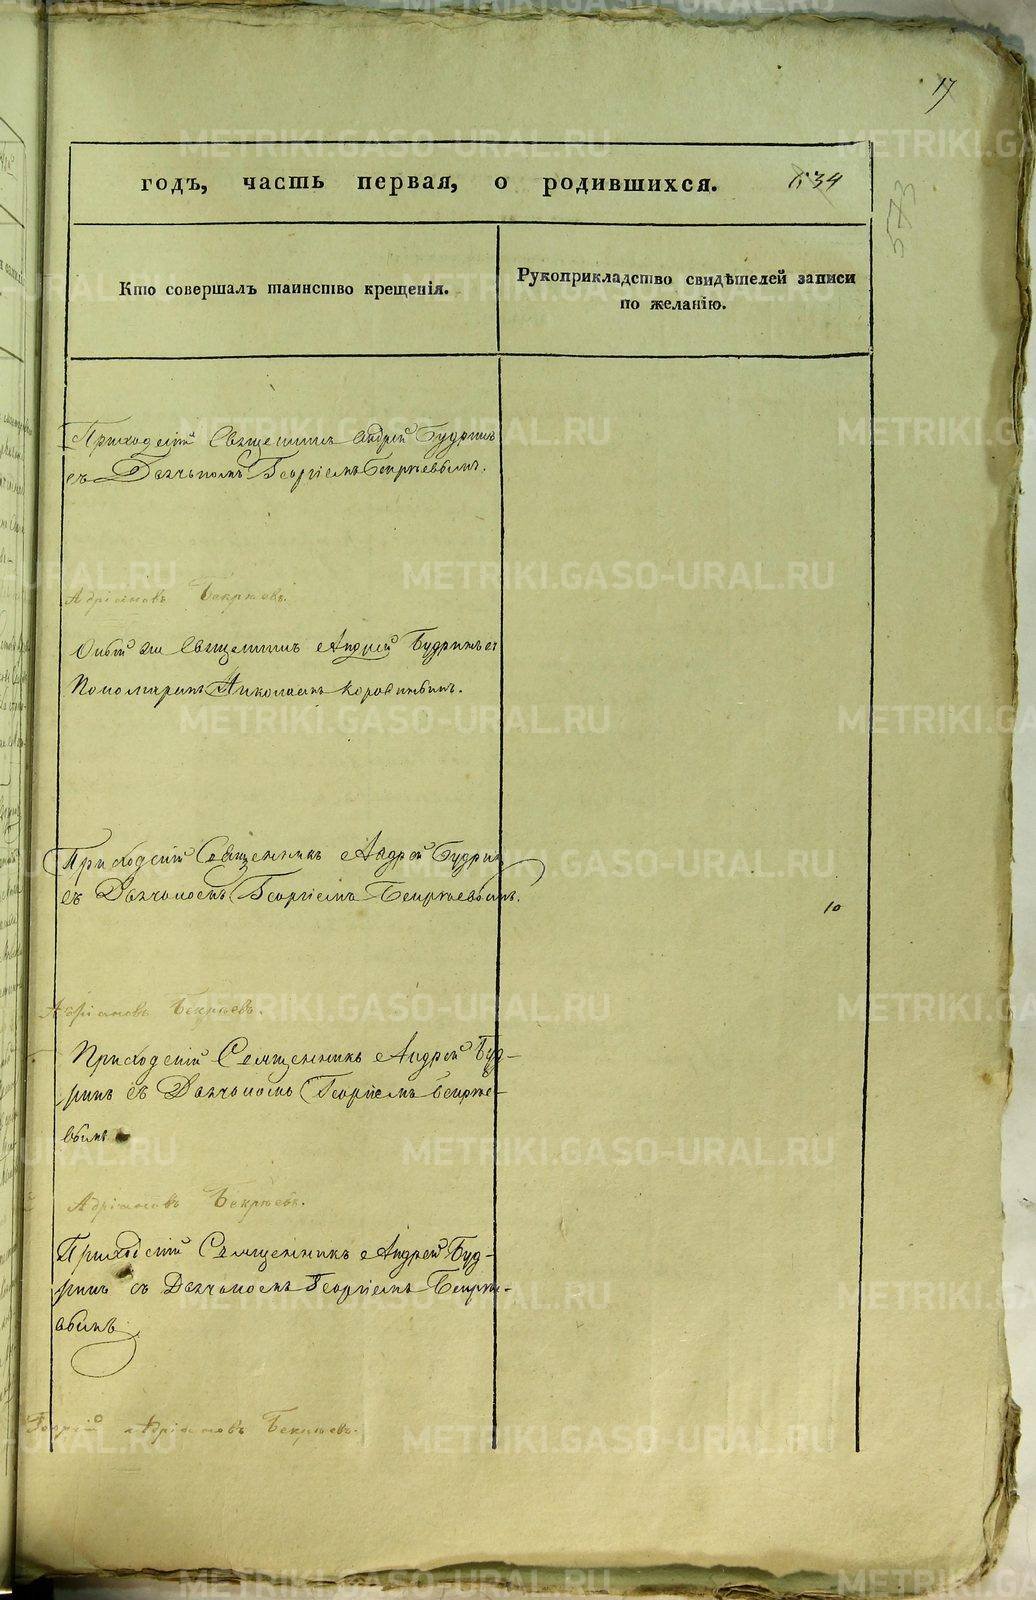 17
годъ, часть первая, о родившихся. 34
573
Кто совершалъ таинство крещенія.
Рукоприкладство свидѣтелей записи
по желанію.
Приходскій Священникъ Андрей Будринъ
съ Дьячкомъ Георгіемъ Бекрѣевымъ.
Адріановъ Бекрѣевъ.
Онъ же Священникъ Андрей Будринъ съ
Пономаремъ Николаемъ Коровинымъ.
Приходскій Священникъ Андрей Будринъ
съ Дьячкомъ Георгіемъ Бекрѣевымъ.
10
Адріановъ Бекрѣевъ.
Приходскій Священникъ Андрей Буд-
ринъ съ Дьячкомъ Георгіемъ Бекрѣе-
вымъ
Адріановъ Бекрѣевъ.
Приходскій Священникъ Андрей Буд-
ринъ съ Дьячкомъ Георгіемъ Бекрѣе-
вымъ
Георгій Адріановъ Бекрѣевъ.
METRIKI.GASO-URAL.RU